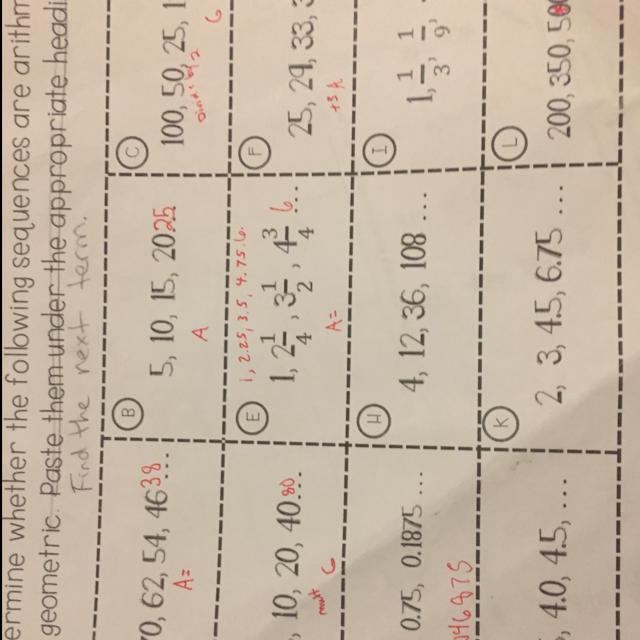 ermine whether the following sequences are arithm
geometric. Paste them under the appropriate headi
Find the next term.
70, 62, 54, 46 38...
A=
B
5, 10, 15, 20 25
A
C
100, 50, 25, 1
G
, 10, 20, 40 80...
mult
G
E
1, 2.25, 3.5, 4.75, 6.
1, 2 1/4, 3 1/2, 4 3/4 6...
A=
F
25, 29, 33, 3
0.75, 0.1875 ...
046875
H
4, 12, 36, 108 ...
I
1, 1/3, 1/9,
, 4.0, 4.5, ...
K
2, 3, 4.5, 6.75 ...
L
200, 350, 500